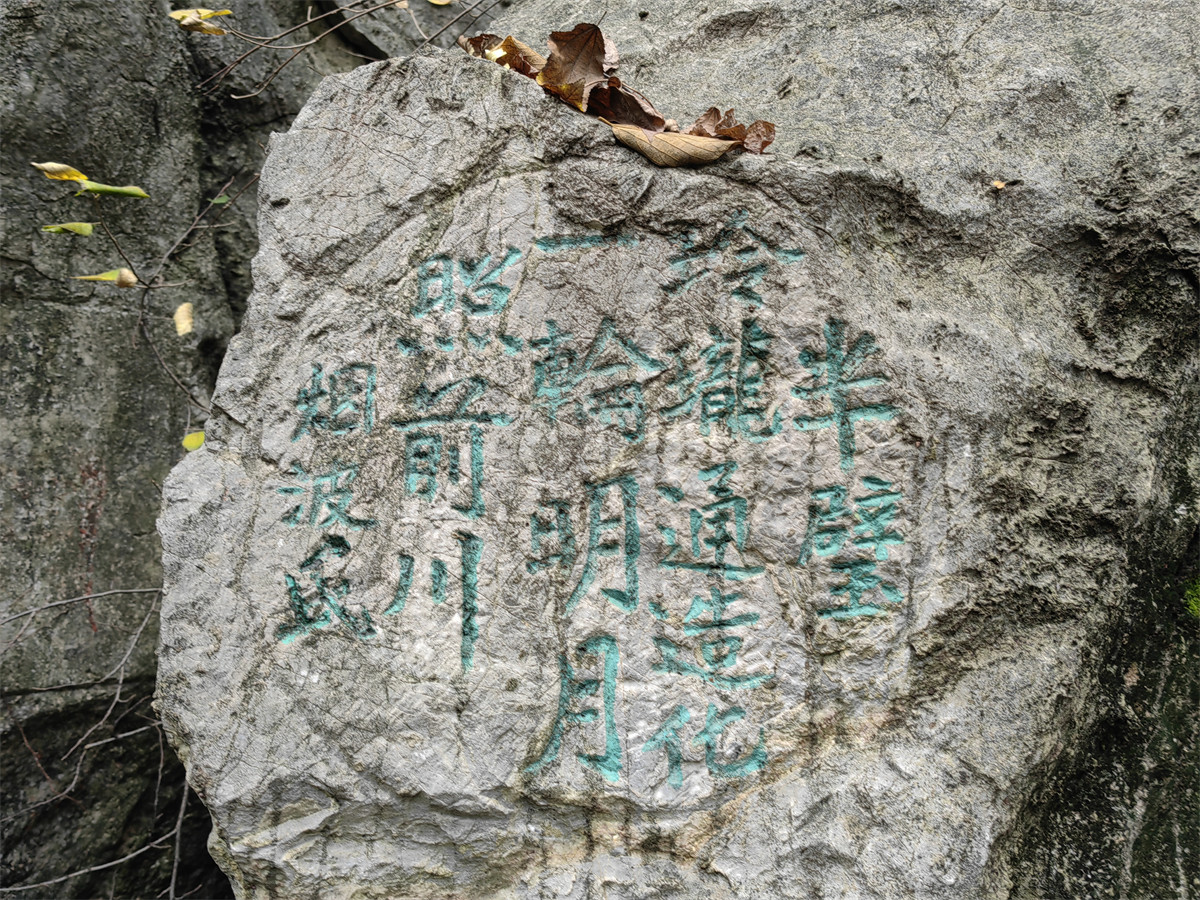 半壁
玲瓏通造化
一輪明月
照前川
烟波氏